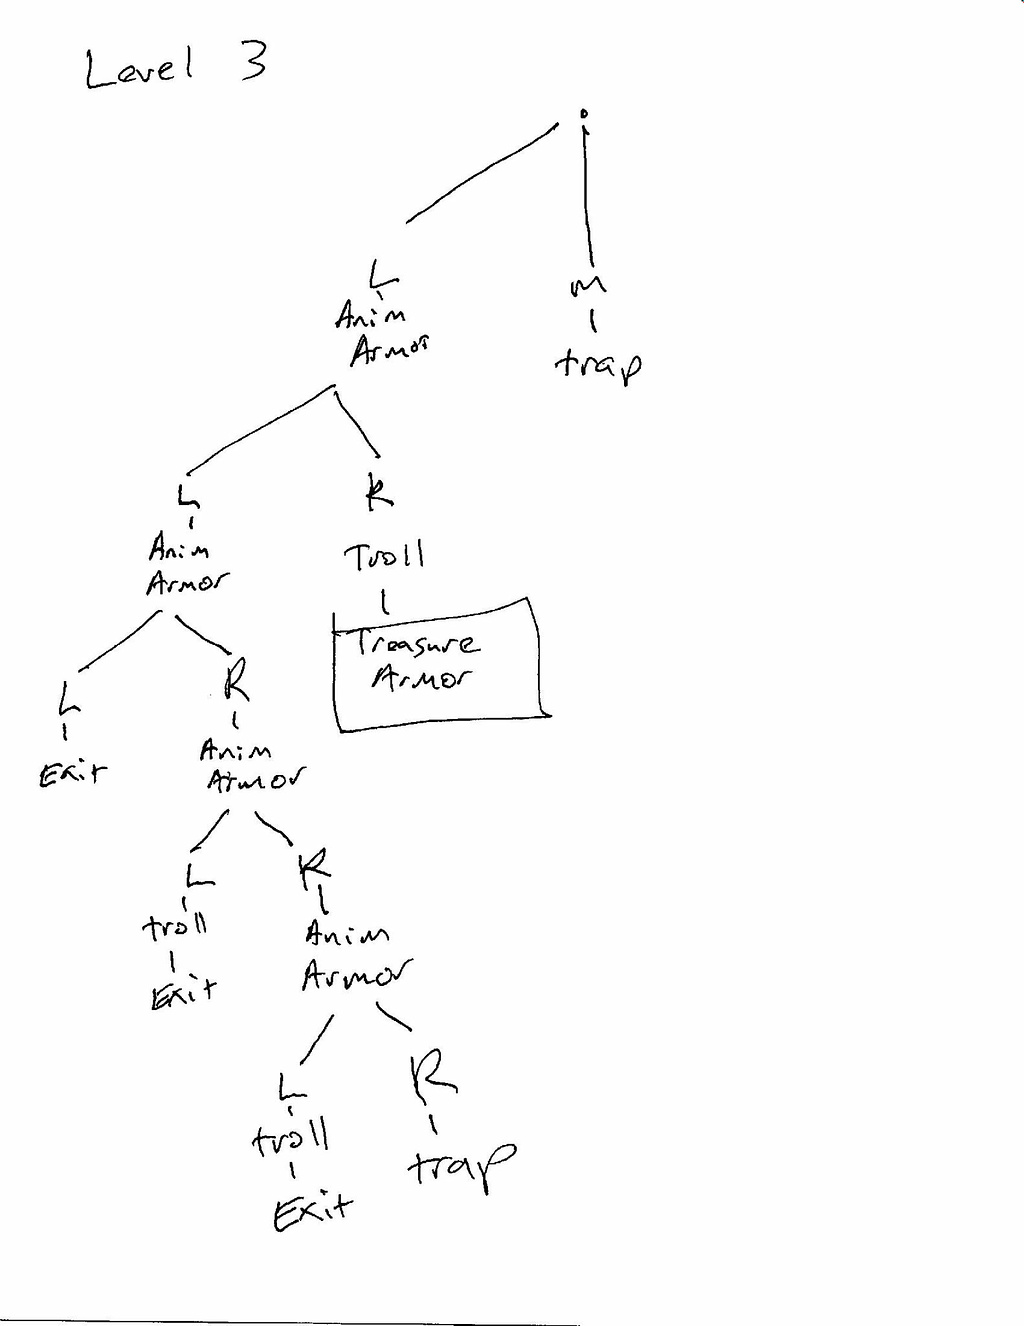 Level 3
L
Anim
Armor
m
trap
L
Anim
Armor
R
Troll
Treasure
Armor
L
Exit
R
Anim
Armor
L
troll
Exit
R
Anim
Armor
L
troll
Exit
R
trap